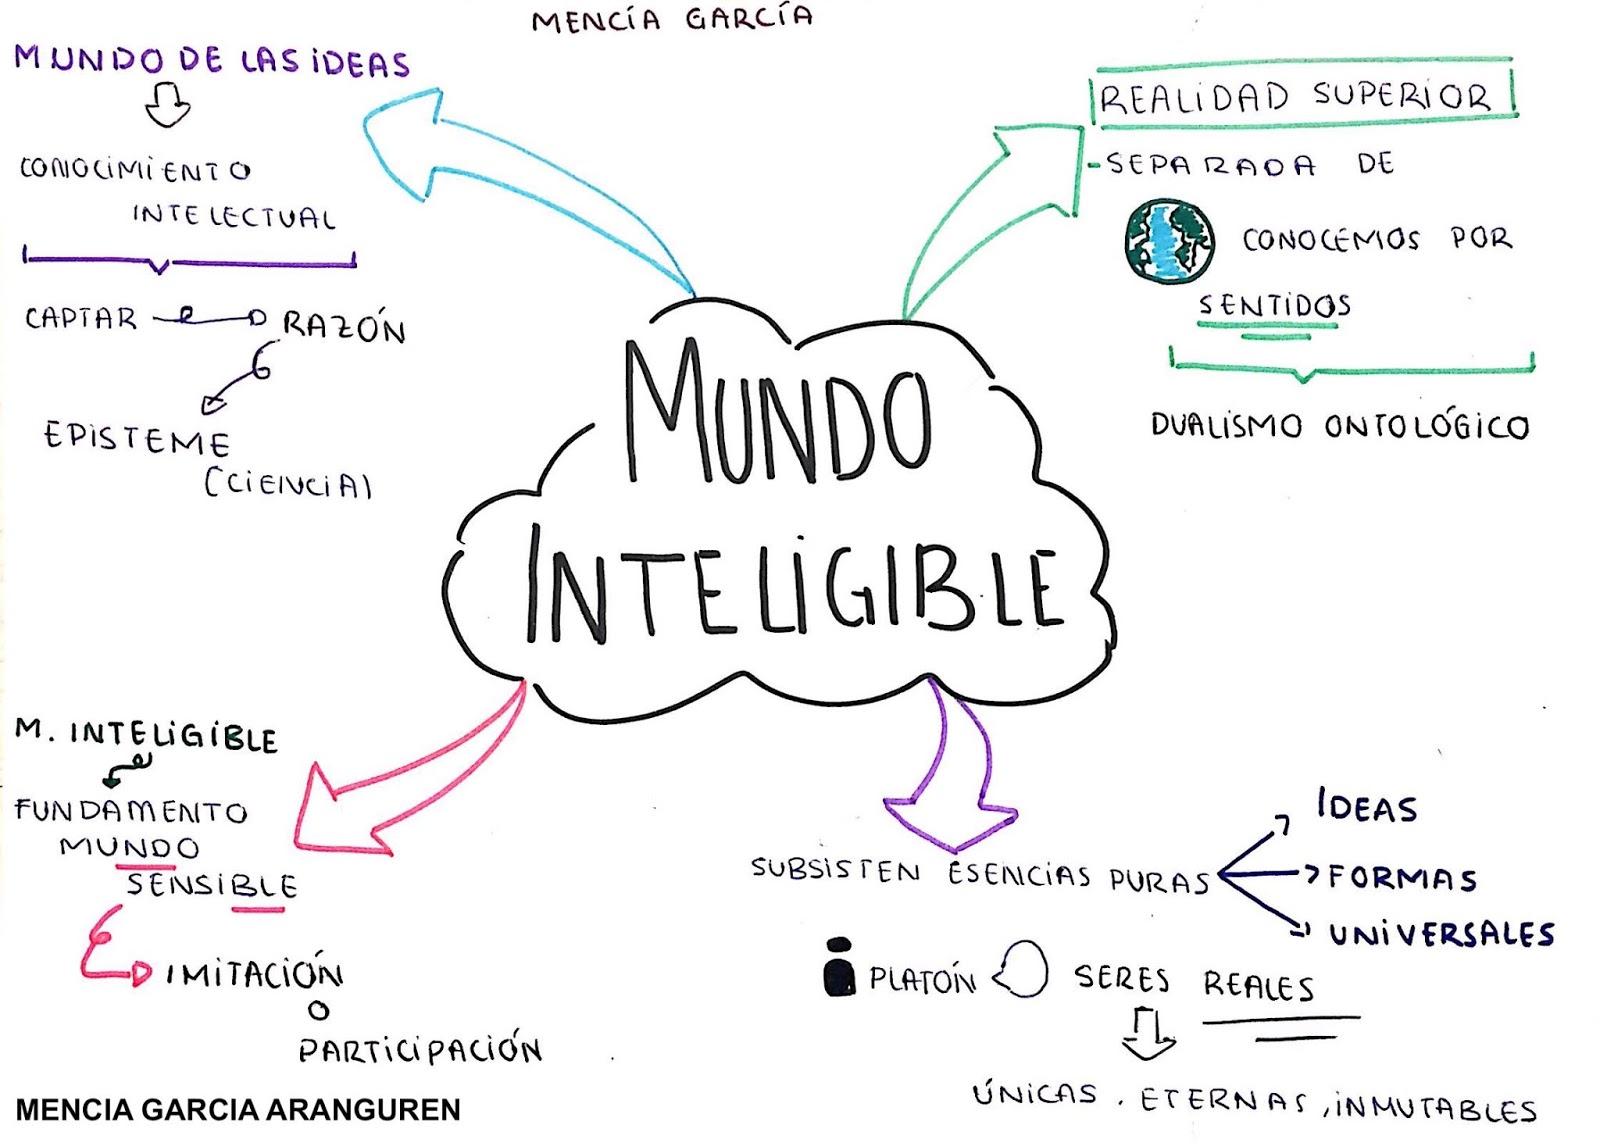 MENCÍA GARCÍA
MUNDO DE LAS IDEAS
CONOCIMIENTO
INTELECTUAL
CAPTAR RAZÓN
EPISTEME
(CIENCIA)
REALIDAD SUPERIOR
-SEPARADA DE
CONOCEMOS POR
SENTIDOS
DUALISMO ONTOLÓGICO
MUNDO
INTELIGIBLE
M. INTELIGIBLE
FUNDAMENTO
MUNDO
SENSIBLE
IMITACIÓN
O
PARTICIPACIÓN
SUBSISTEN ESENCIAS PURAS
IDEAS
FORMAS
UNIVERSALES
PLATÓN SERES REALES
ÚNICAS, ETERNAS, INMUTABLES
MENCIA GARCIA ARANGUREN